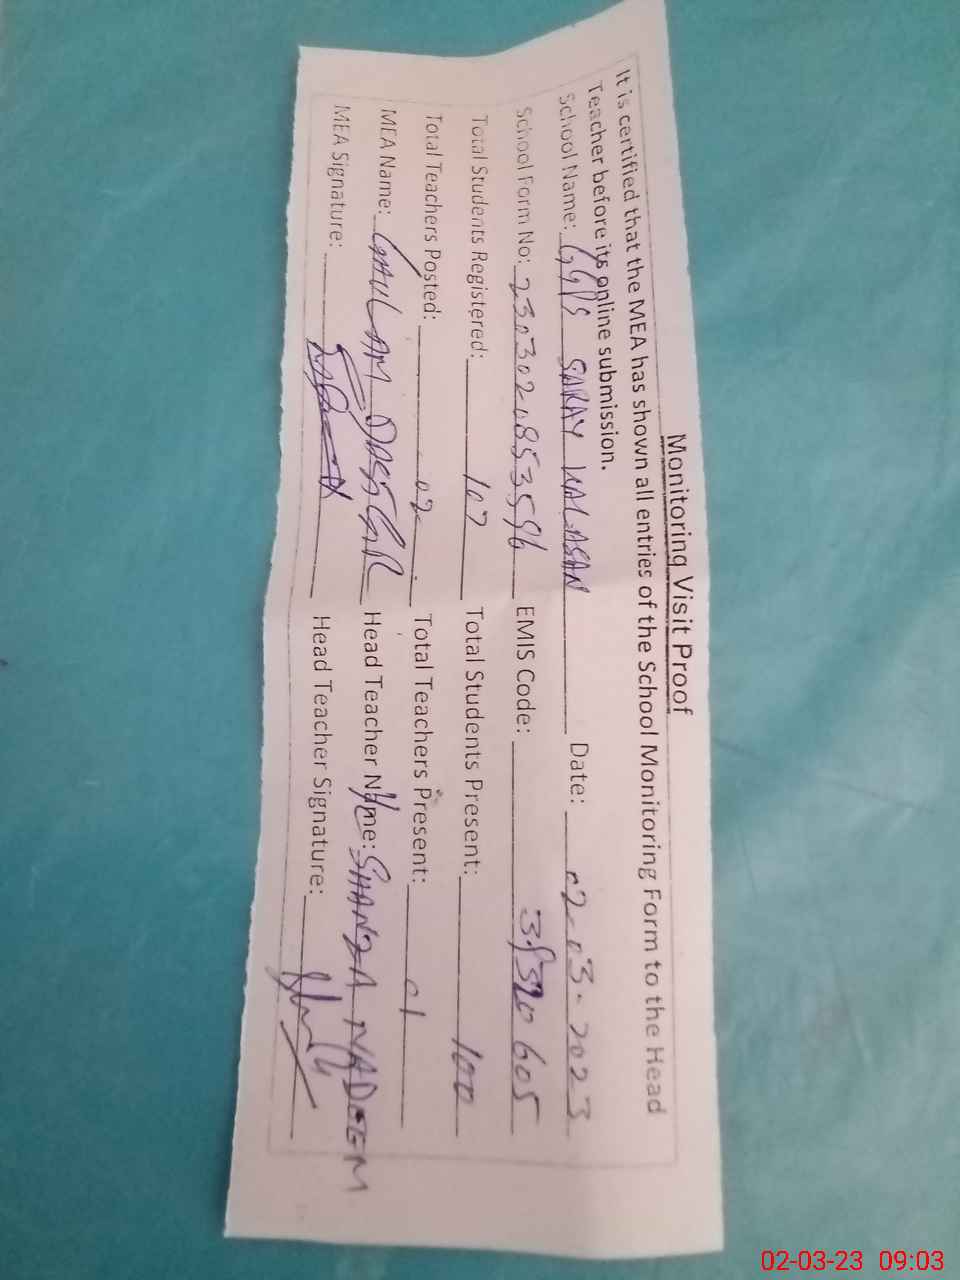 Monitoring Visit Proof
It is certified that the MEA has shown all entries of the School Monitoring Form to the Head
Teacher before its online submission.
School Name: GGPS SARAY Date: 02-03-2023
School Form No: 2303020853596 EMIS Code: 38520605
Total Students Registered: 107 Total Students Present: 100
Total Teachers Posted: 02 Total Teachers Present: 01
MEA Name: GHULAM Head Teacher Name: SHANZA NADEEM
MEA Signature: Head Teacher Signature:
02-03-23 09:03